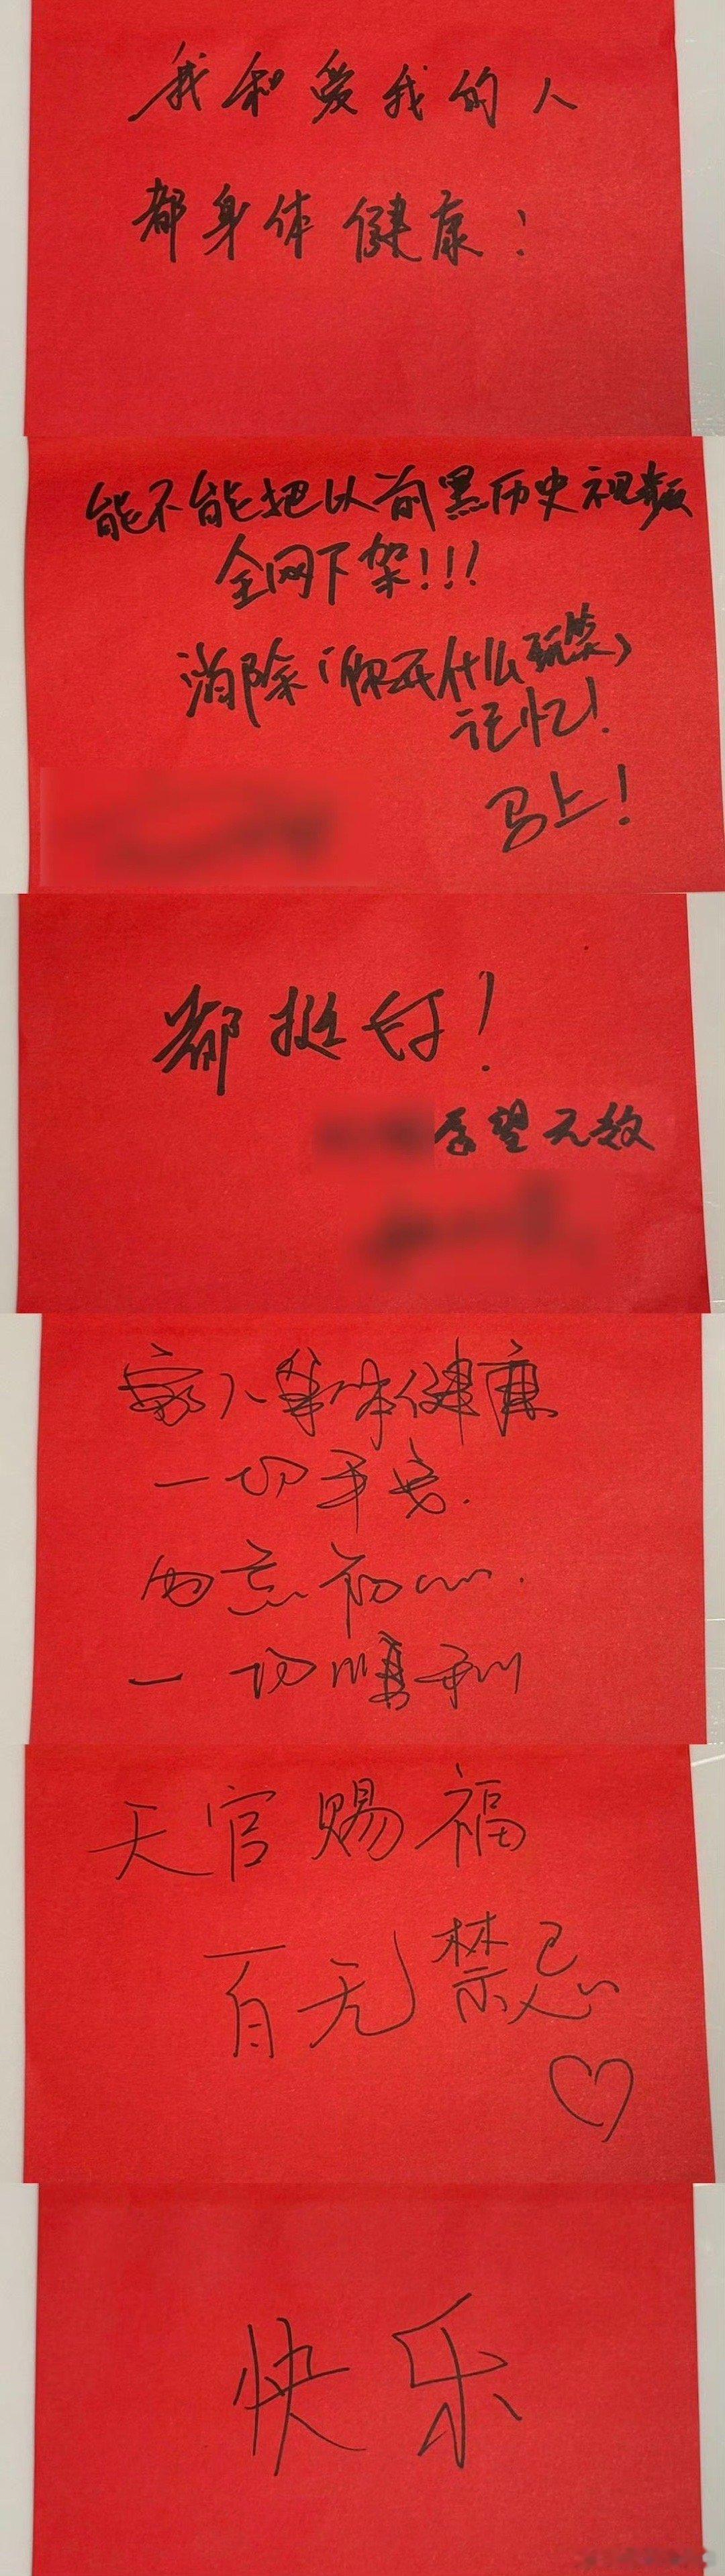 我和爱我的人
都身体健康！
能不能把以前黑历史视频
全网下架!!!
消除「你开什么玩笑」
记忆!
马上!
都挺好!
希望无敌
家人身体健康
一切平安.
勿忘初心.
一切顺利
天官赐福
百无禁忌
快乐